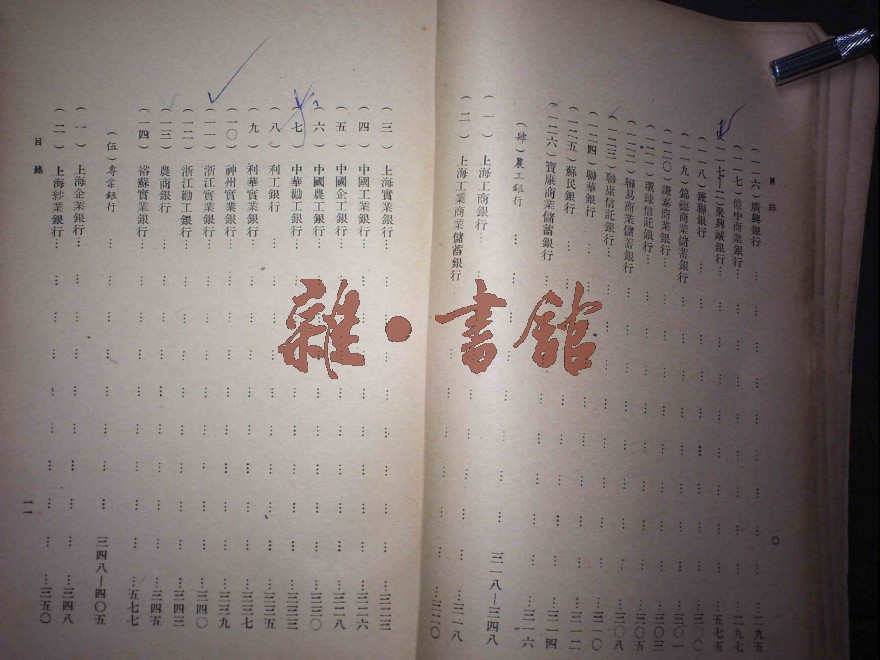 目錄
(一一六)廣興銀行…………二九五
(一一七)億中商業銀行…………二九七
(一一七—二)聚興誠銀行…………五七五
(一一八)聯銀行…………三〇〇
(一一九)錦德商業儲蓄銀行…………三〇一
(一二〇)謙泰商業銀行…………三〇三
(一二一)環球信託銀行…………三〇五
(一二二)聯易商業儲蓄銀行…………三〇八
(一二三)聯康信託銀行…………三一〇
(一二四)聯華銀行…………三一二
(一二五)蘇民銀行…………三一四
(一二六)寶康商業儲蓄銀行…………三一六
(肆)農工銀行…………三一八—三四八
(一)上海工商銀行…………三一八
(二)上海工業商業儲蓄銀行…………三二〇
(三)上海實業銀行…………三二三
(四)中國工業銀行…………三二六
(五)中國企工銀行…………三二八
(六)中國農工銀行…………三三〇
(七)中華勸工銀行…………三三三
(八)利工銀行…………三三五
(九)利華實業銀行…………三三七
(一〇)神州實業銀行…………三三九
(一一)浙江實業銀行…………三四〇
(一二)浙江勸工銀行…………三四三
(一三)農商銀行…………三四五
(一四)裕蘇實業銀行…………五七七
(伍)專業銀行…………三四八—四〇五
(一)上海企業銀行…………三四八
(二)上海紗業銀行…………三五〇
目錄
一一
雜·書館